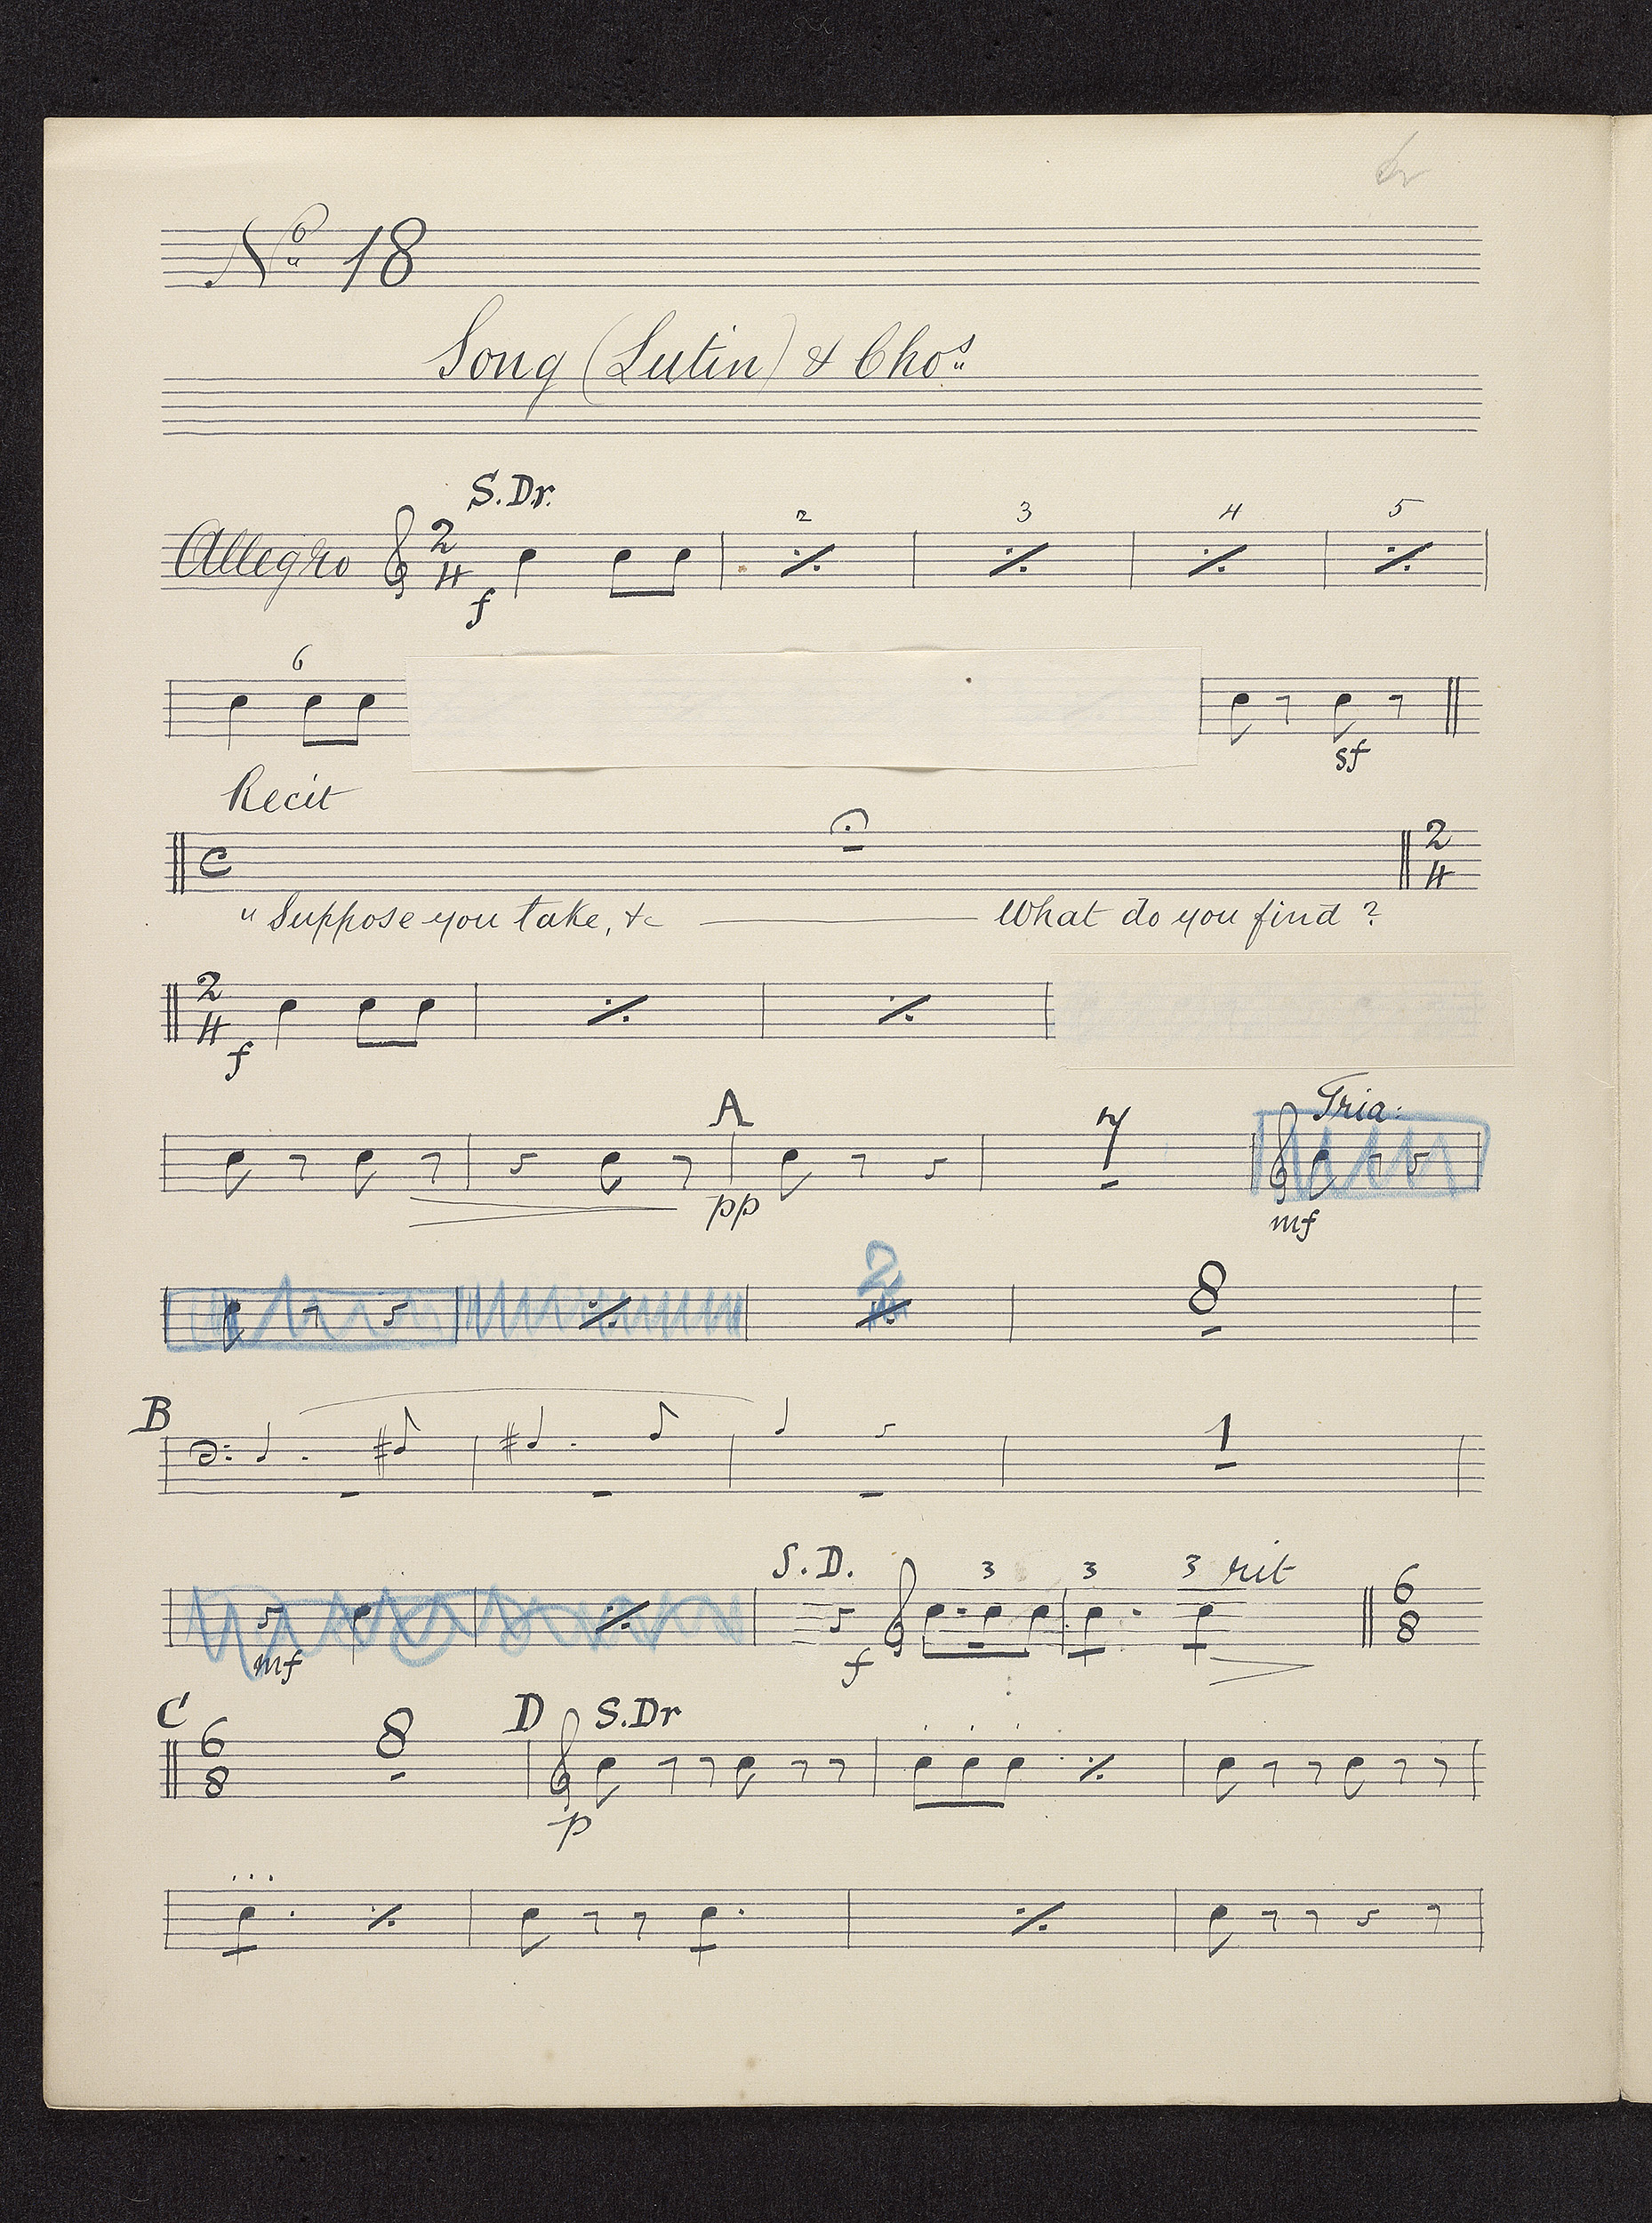 No 18
Song (Lutin) & Chos
S.Dr.
2 3 4 5
Allegro 2/4
f
6
sf
Recit
C 2/4
"Suppose you take, &c What do you find?
2/4
f
A 7 Tria:
pp mf
2 8
B
1
S.D. 3 3 3 rit
6/8
mf f
C D S.Dr
6/8 8
p